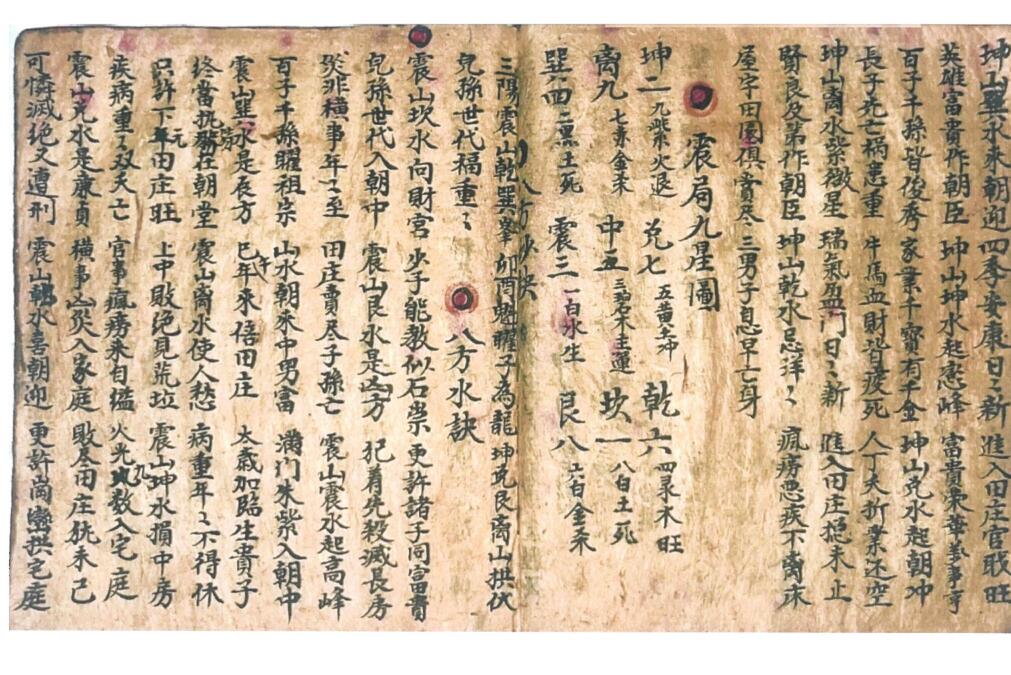 坤山巽水來朝迎 四季安康日〻新 進入田庄官職旺
英雄富貴作朝臣 坤山坤水起峦峰 富貴榮華事事亨
百子千孫皆俊秀 家業千寳有千金 坤山兑水起朝冲
長子先亡禍患重 牛馬血財皆瘦死 人丁夭折業还空
坤山离水紫微星 瑞氣盈门日〻新 進入田庄稳未止
賢良及第作朝臣 坤山乾水忌洋〻 瘋痨恶疾不离床
屋宇田園俱賣尽 三男子息早亡身
震局九星圖
坤二 九紫火退 兑七 五黄大沖 乾六 四录木旺
离九 七赤金来 中五 三碧木主運 坎一 八白土死
巽四 二黑土死 震三 一白水生 艮八 六白金来
三陽震山乾巽峯 卯酉魁罡子為龍 坤兑艮离山拱伏
兒孫世代福重〻 八方水訣
震山坎水向財宫 少子能教似石崇 更許諸子同富貴
兒孫世代入朝中 震山艮水是凶方 犯着先殺滅長房
災非横事年〻至 田庄賣尽子孫亡 震山震水起高峰
百子千孫耀祖宗 山水朝来中男富 满门朱紫入朝中
震山巽水是辰方 巳午年来倍田庄 太歳加臨生貴子
终當抚務在朝堂 震山离水使人愁 病重年〻不得休
只許下元田庄旺 上中敗绝見荒坵 震山坤水損中房
疾病重〻双夭亡 官事瘋痨来自缢 火光九數入宅庭
震山兑水是廉貞 横事凶災入家庭 敗尽田庄犹未已
可憐滅绝又遭刑 震山乾水喜朝迎 更許崗巒拱宅庭